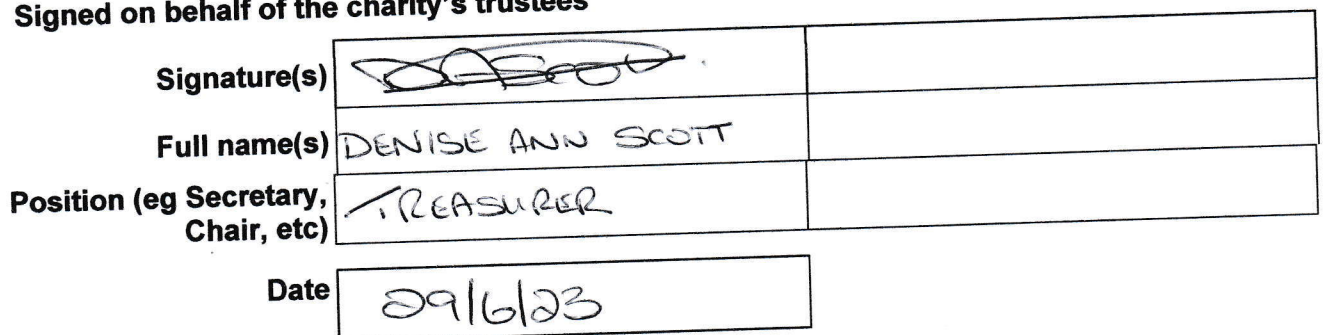 Signed on behalf of the charity's trustees
Signature(s) DAScott
Full name(s) DENISE ANN SCOTT
Position (eg Secretary, TREASURER
Chair, etc)
Date 29/6/23